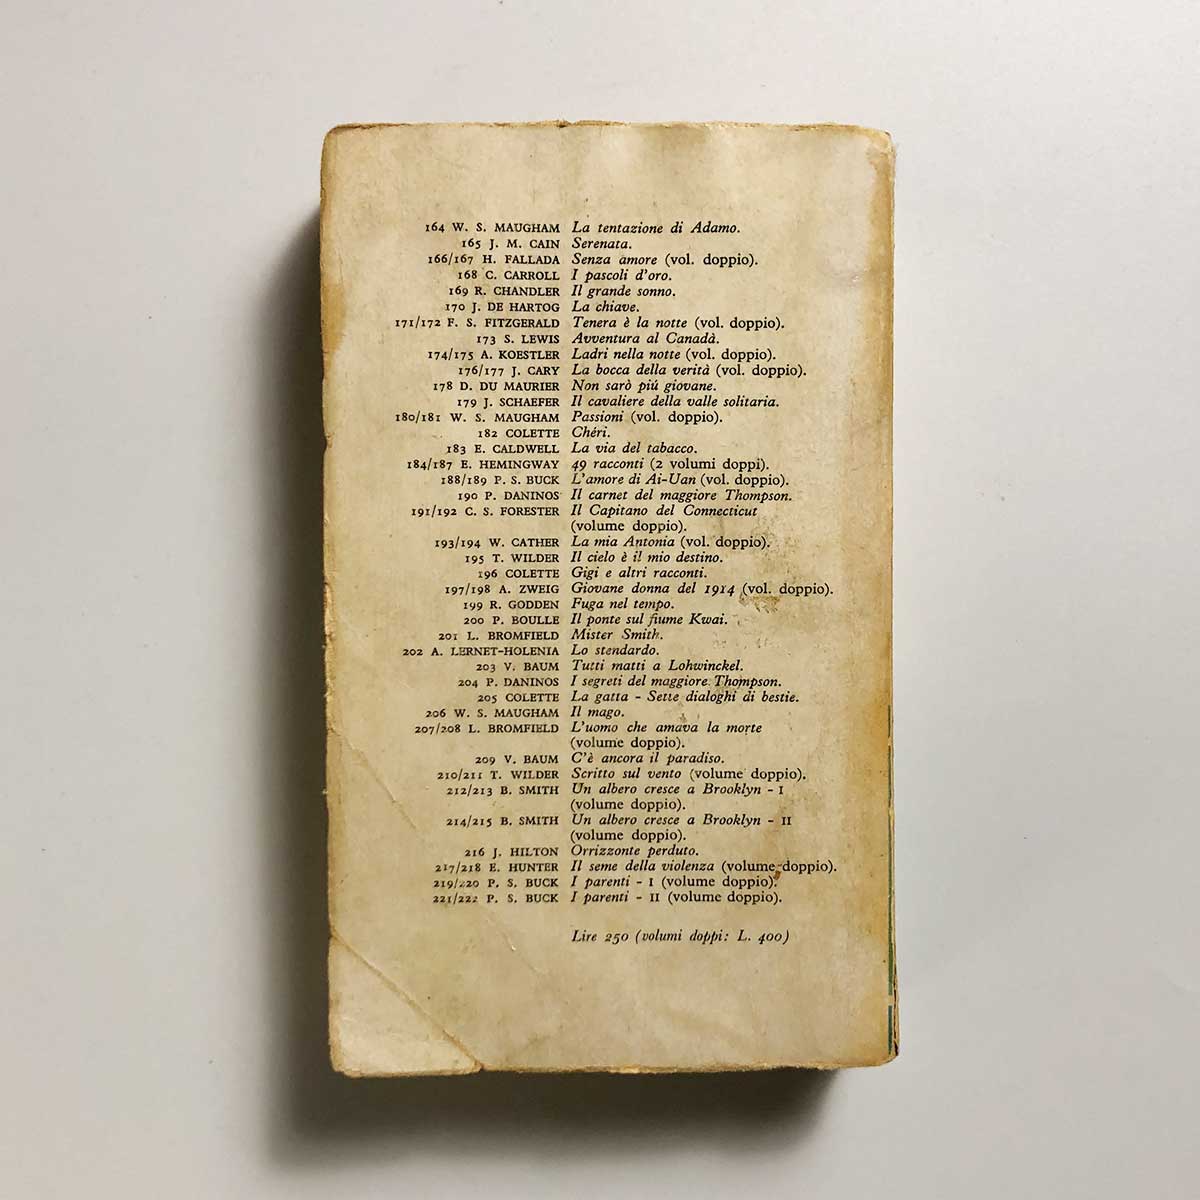 164 W. S. MAUGHAM La tentazione di Adamo.
165 J. M. CAIN Serenata.
166/167 H. FALLADA Senza amore (vol. doppio).
168 C. CARROLL I pascoli d'oro.
169 R. CHANDLER Il grande sonno.
170 J. DE HARTOG La chiave.
171/172 F. S. FITZGERALD Tenera è la notte (vol. doppio).
173 S. LEWIS Avventura al Canadà.
174/175 A. KOESTLER Ladri nella notte (vol. doppio).
176/177 J. CARY La bocca della verità (vol. doppio).
178 D. DU MAURIER Non sarò piú giovane.
179 J. SCHAEFER Il cavaliere della valle solitaria.
180/181 W. S. MAUGHAM Passioni (vol. doppio).
182 COLETTE Chéri.
183 E. CALDWELL La via del tabacco.
184/187 E. HEMINGWAY 49 racconti (2 volumi doppi).
188/189 P. S. BUCK L'amore di Ai-Uan (vol. doppio).
190 P. DANINOS Il carnet del maggiore Thompson.
191/192 C. S. FORESTER Il Capitano del Connecticut
(volume doppio).
193/194 W. CATHER La mia Antonia (vol. doppio).
195 T. WILDER Il cielo è il mio destino.
196 COLETTE Gigi e altri racconti.
197/198 A. ZWEIG Giovane donna del 1914 (vol. doppio).
199 R. GODDEN Fuga nel tempo.
200 P. BOULLE Il ponte sul fiume Kwai.
201 L. BROMFIELD Mister Smith.
202 A. LERNET-HOLENIA Lo stendardo.
203 V. BAUM Tutti matti a Lohwinckel.
204 P. DANINOS I segreti del maggiore Thompson.
205 COLETTE La gatta - Sette dialoghi di bestie.
206 W. S. MAUGHAM Il mago.
207/208 L. BROMFIELD L'uomo che amava la morte
(volume doppio).
209 V. BAUM C'è ancora il paradiso.
210/211 T. WILDER Scritto sul vento (volume doppio).
212/213 B. SMITH Un albero cresce a Brooklyn - I
(volume doppio).
214/215 B. SMITH Un albero cresce a Brooklyn - II
(volume doppio).
216 J. HILTON Orrizzonte perduto.
217/218 E. HUNTER Il seme della violenza (volume doppio).
219/220 P. S. BUCK I parenti - I (volume doppio).
221/222 P. S. BUCK I parenti - II (volume doppio).
Lire 250 (volumi doppi: L. 400)